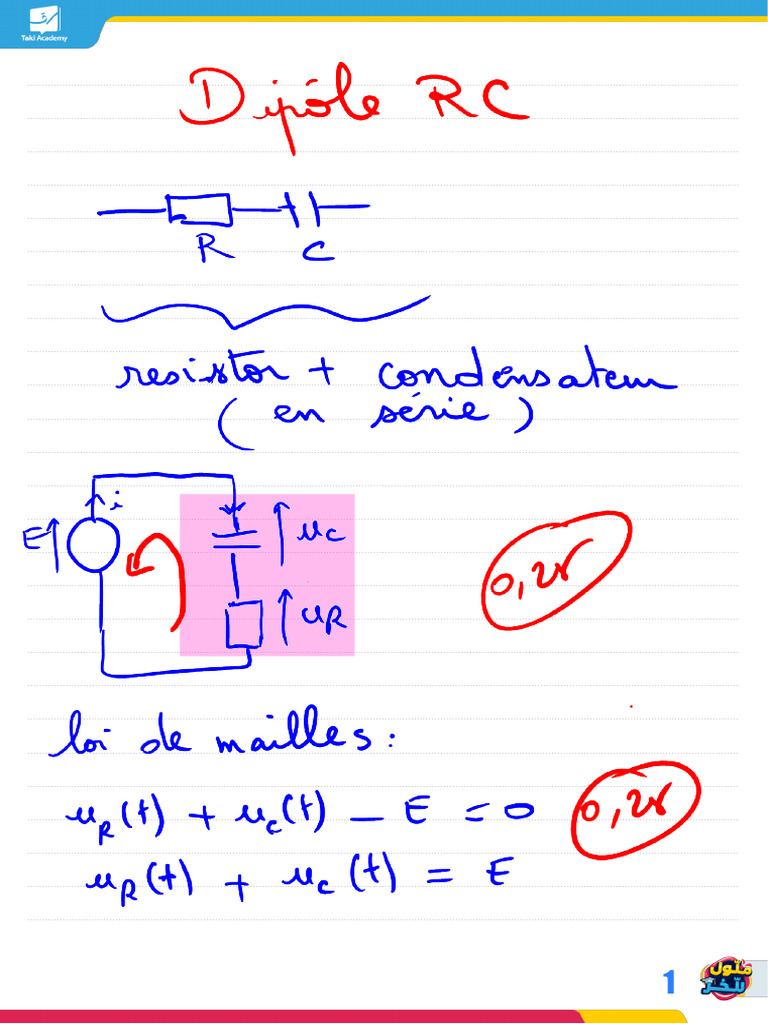 Taki Academy
Dipôle RC
R C
resistor + condensateur
(en série)
i
E
uC
uR
0,25
loi de mailles:
uR(t) + uC(t) - E = 0
0,25
uR(t) + uC(t) = E
1